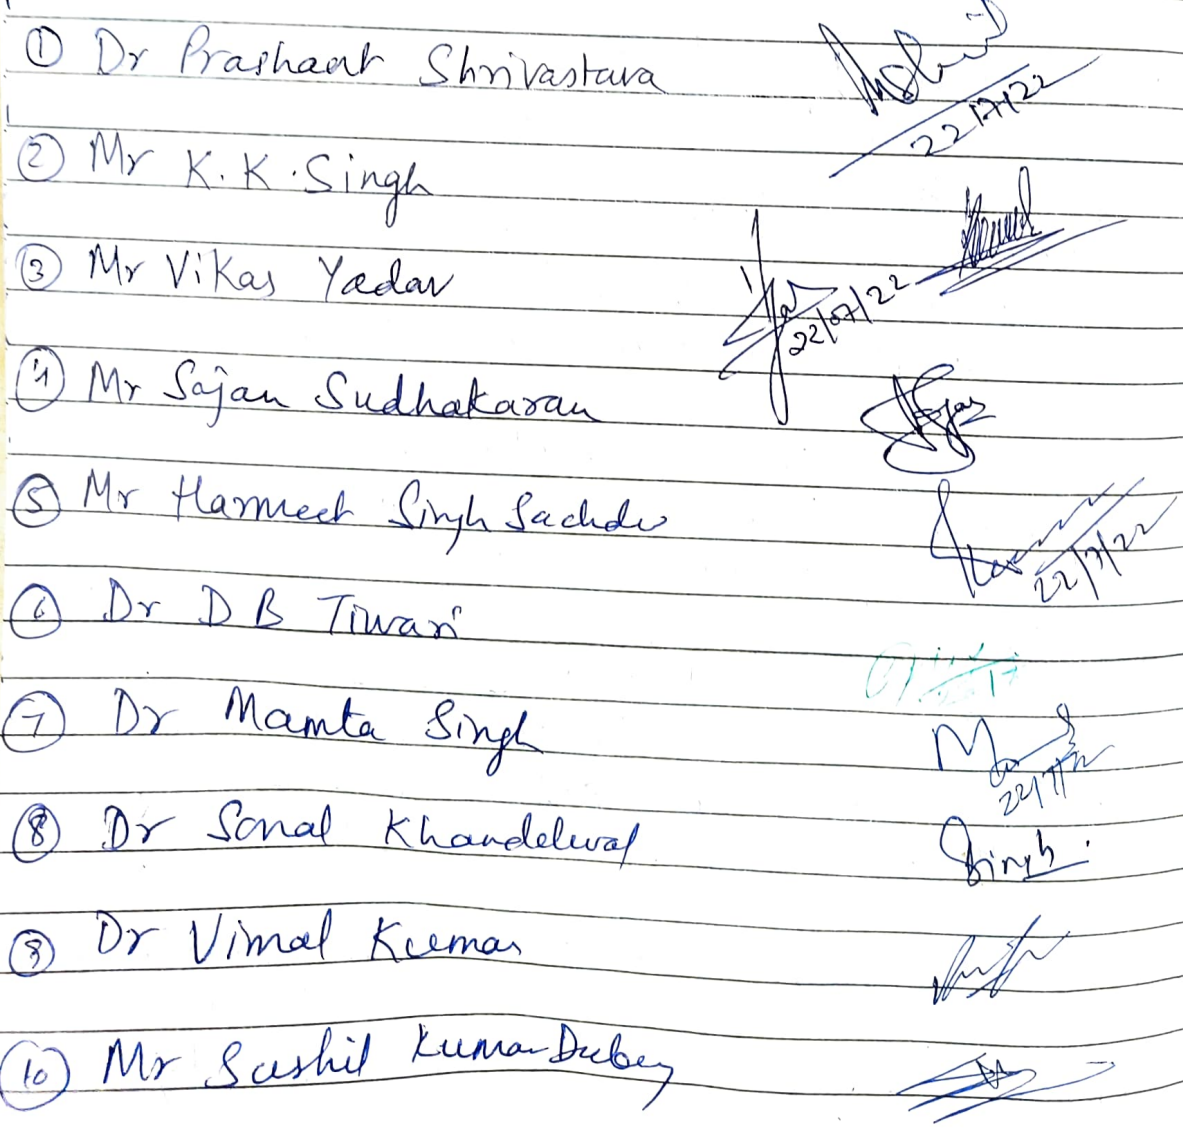 ① Dr Prashant Shrivastava
22/7/22
② Mr K.K. Singh
③ Mr Vikas Yadav
22/07/22
④ Mr Sajan Sudhakaran
⑤ Mr Harmeet Singh Sachdev
22/7/22
⑥ Dr D B Tiwari
⑦ Dr Mamta Singh
22/7/22
⑧ Dr Sonal Khandelwal
Singh
⑨ Dr Vimal Kumar
⑩ Mr Sushil Kumar Dubey